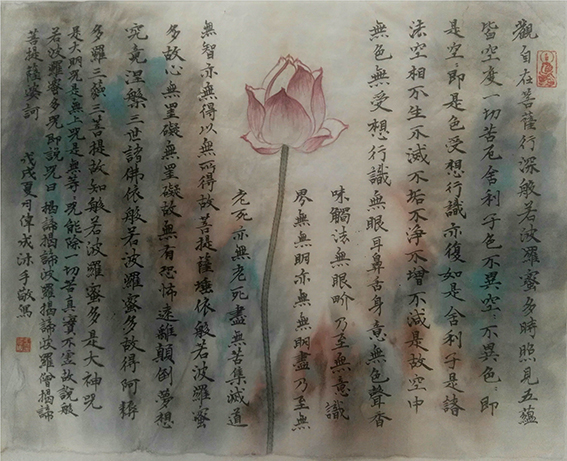 觀自在菩薩行深般若波羅蜜多時照見五蘊
皆空度一切苦厄舍利子色不異空〻不異色即
是空〻即是色受想行識亦復如是舍利子是諸
法空相不生不滅不垢不淨不增不減是故空中
無色無受想行識無眼耳鼻舌身意無色聲香
味觸法無眼界乃至無意識
界無無明亦無無明盡乃至無
老死亦無老死盡無苦集滅道
無智亦無得以無所得故菩提薩埵依般若波羅蜜
多故心無罣礙無罣礙故無有恐怖遠離顛倒夢想
究竟涅槃三世諸佛依般若波羅蜜多故得阿耨
多羅三藐三菩提故知般若波羅蜜多是大神咒
是大明咒是無上咒是無等〻咒能除一切苦真實不虛故說般
若波羅蜜多咒即說咒曰 揭諦揭諦波羅揭諦波羅僧揭諦
菩提薩婆訶 戊戌夏月偉成沐手敬寫